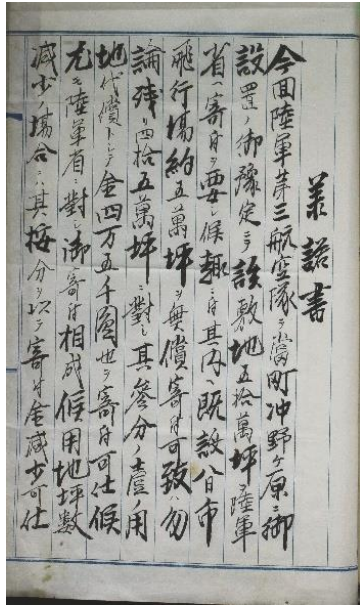 承諾書
今回陸軍第三航空隊ヲ當町沖野ケ原ニ御
設置ノ御豫定ニテ該敷地五拾萬坪ヲ陸軍
省ヘ寄附ヲ要シ候趣ニ付其内ヘ既設八日市
飛行場約五萬坪ヲ無償寄附可致ハ勿
論残リ四拾五萬坪ニ對シ其參分ノ壹ノ用
地代償トシテ金四万五千圓也ヲ寄附可仕候
尤モ陸軍省ニ對シ御寄附相成候用地坪數
減少ノ場合ハ其按分ヲ以テ寄附金減少可仕